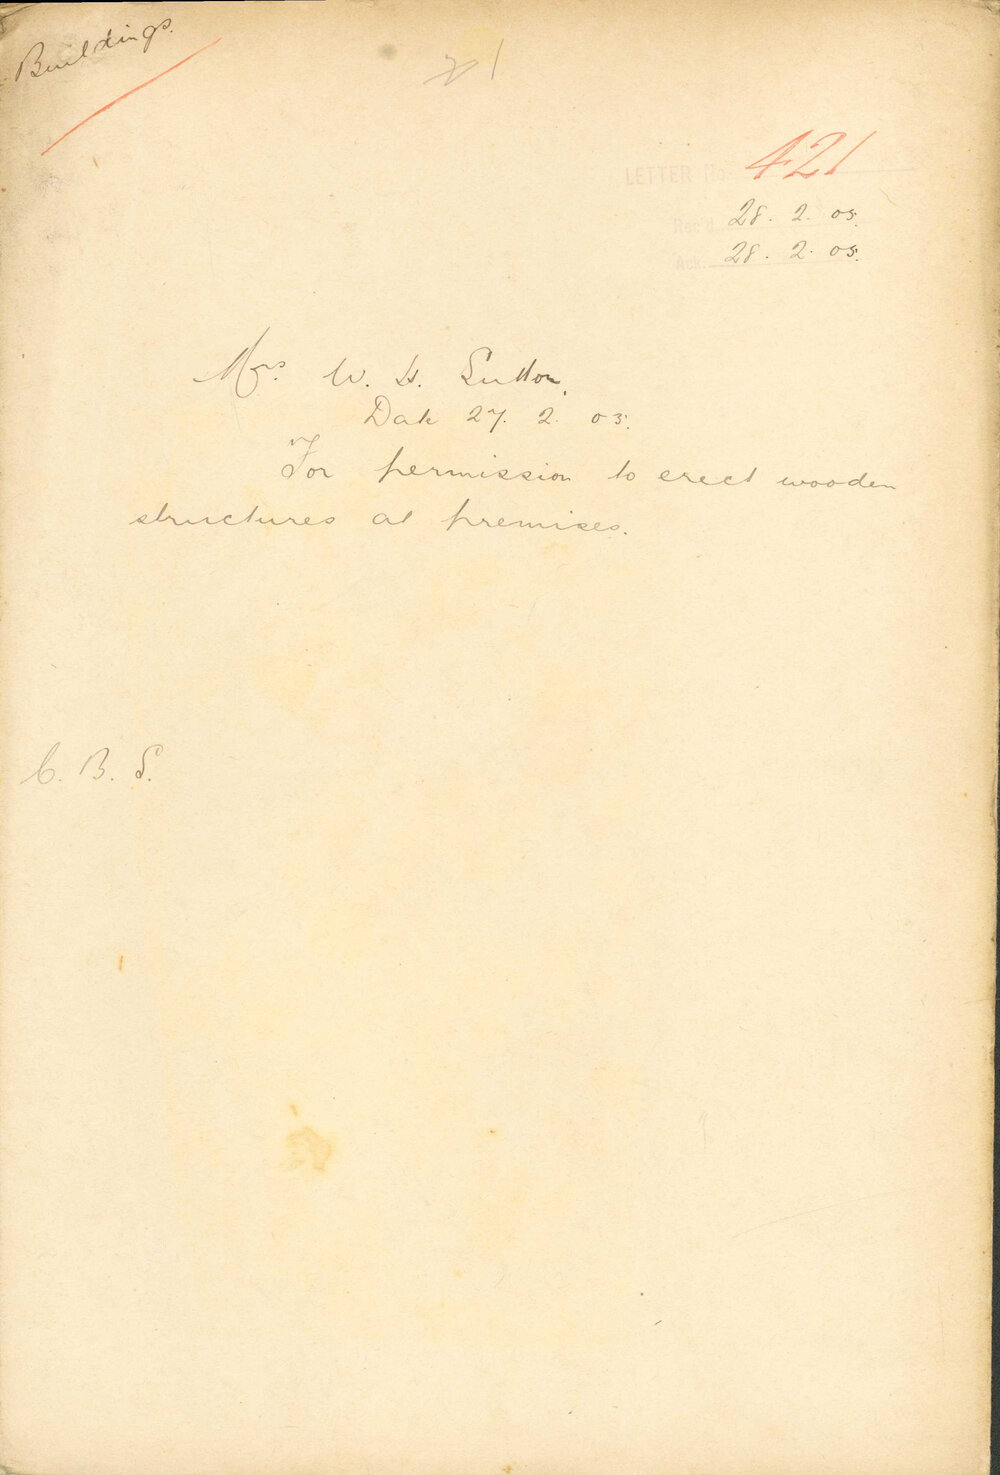 Buildings.
LETTER No. 421
Rec'd. 28. 2. 05.
Ack. 28. 2. 05.
Mrs. W. H. Sutton.
Date 27. 2. 05.
For permission to erect wooden
structures at premises.
C. B. S.